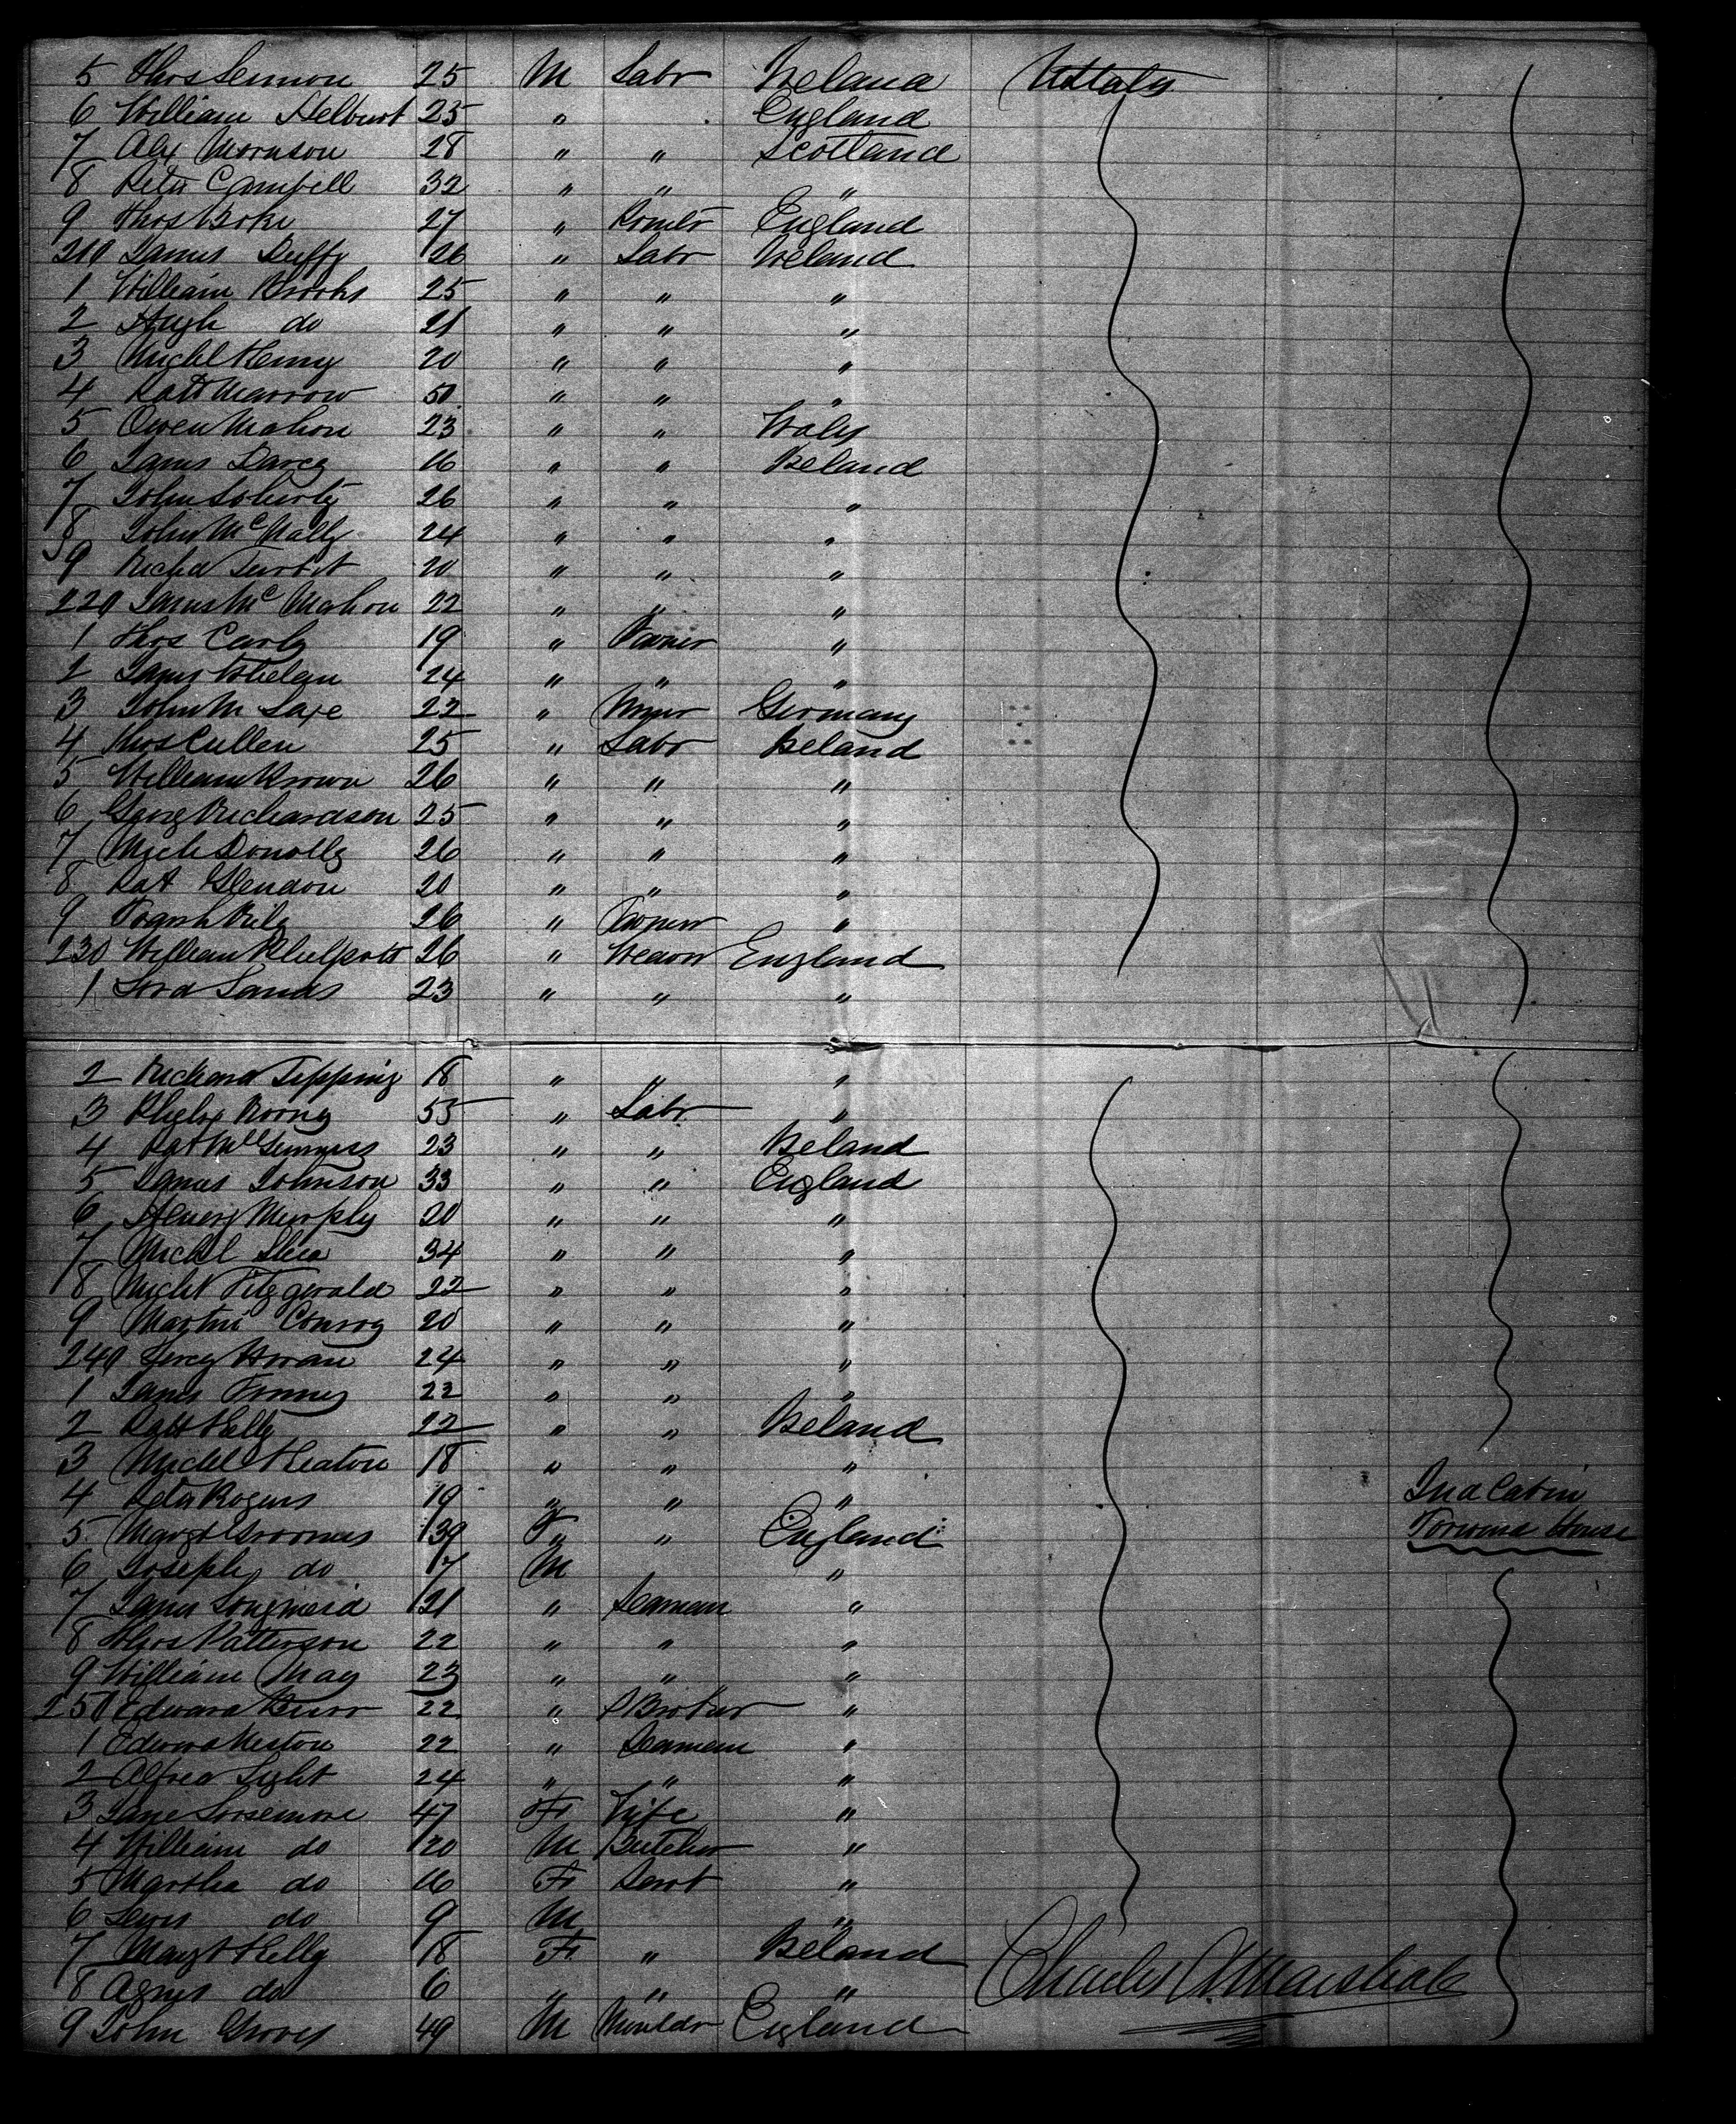 5 Thos Lennon 25 M Labr Ireland U States
6 William Helburt 25 " England
7 Alex Morrison 28 " " Scotland
8 Peter Campbell 32 " " "
9 Thos 27 " England
210 James Duffy 26 " Labr Ireland
1 William Brooks 25 " " "
2 Hugh do 21 " " "
3 Michl Henry 20 " " "
4 Patt Marrow 50 " " "
5 Owen Mahon 23 " " Wales
6 James Darcy 16 " " Ireland
7 John Doherty 26 " " "
8 John McNally 24 " " "
9 Richd 20 " " "
220 James McMahon 22 " " "
1 Thos Carly 19 " Farmer "
2 James Whelan 24 " " "
3 John M Saxe 22 " Miner Germany
4 Thos Cullen 25 " Labr Ireland
5 William Brown 26 " " "
6 Georg Richardson 25 " " "
7 Mich Donolly 26 " " "
8 Pat Glendon 20 " " "
9 Frank Rily 26 " Farmer "
230 William Philpott 26 " Weaver England
1 Sands 23 " " "
2 Richard Tepping 18 " " "
3 Phelix Roony 55 " Labr "
4 Pat McGinniss 23 " " Ireland
5 James Johnson 33 " " England
6 Henry Murphy 20 " " "
7 Michl Shea 34 " " "
8 Michl Fitzgerald 22 " " "
9 Martin Conroy 20 " " "
240 Percy Horan 24 " " "
1 James 22 " " "
2 Patt Kelly 22 " " Ireland
3 Michl Keaton 18 " " "
4 Peter Rogers 19 " " "
2nd Cabin
5 Margt 39 F " England
Forward House
6 Joseph do 17 M "
7 James Longmeid 21 " Seaman "
8 Thos Patterson 22 " " "
9 William May 23 " " "
250 Edward Burr 22 " Broker "
1 Edward Weston 22 " Seaman "
2 Alfred Light 24 " " "
3 Jane Loosemore 47 F Wife "
4 William do 20 M Butcher "
5 Martha do 16 F Servt "
6 Lewis do 9 M "
7 Margt Kelly 18 F " Ireland
8 Agnes do 6 " " "
Charles A. Marshall
9 John Groves 49 M Moulder England